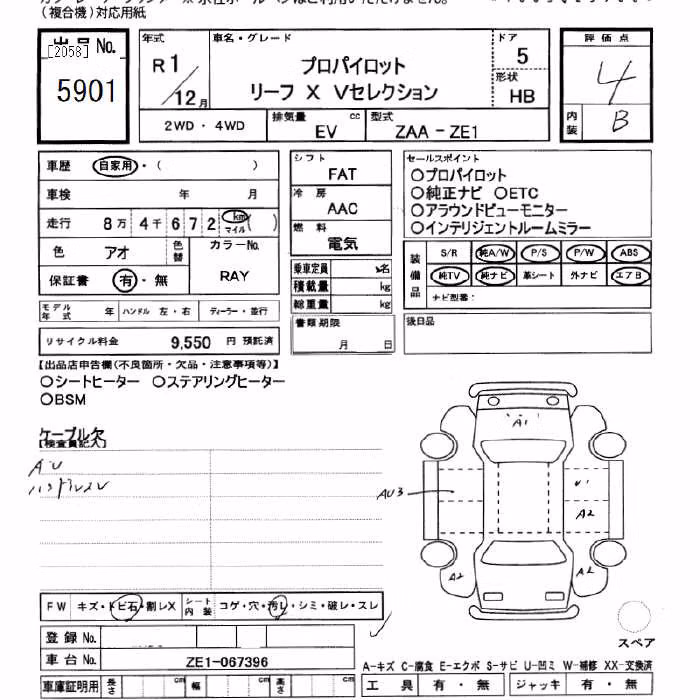 (複合機)対応用紙
出品 No.
[2058]
5901
年式
R1/12月
車名・グレード
プロパイロット
リーフ X Vセレクション
ドア
5
形状
HB
評価点
4
内装
B
2WD・4WD
排気量 cc
EV
型式
ZAA-ZE1
車歴 自家用・( )
車検 年 月
走行 8万 4千 6 7 2 km マイル ( )
色 アオ 色替
カラーNo.
RAY
保証書 有・無
モデル年式 年 ハンドル 左・右 ディーラー・並行
リサイクル料金 9,550 円 預託済
シフト
FAT
冷房
AAC
燃料
電気
乗車定員 名
積載量 kg
総重量 kg
書類期限
月 日
セールスポイント
○プロパイロット
○純正ナビ ○ETC
○アラウンドビューモニター
○インテリジェントルームミラー
装備品
S/R 純A/W P/S P/W ABS
純TV 純ナビ 革シート 外ナビ エアB
ナビ型番:
後日品
【出品店申告欄(不良箇所・欠品・注意事項等)】
○シートヒーター ○ステアリングヒーター
○BSM
ケーブル欠
【検査員記入】
AU
ハンドルスレ
A1
AU3
U1
A2
A2
A2
FW キズ・トビ石・割レX
シート内装 コゲ・穴・汚レ・シミ・破レ・スレ
スペア
登録 No.
車台 No. ZE1-067396
車庫証明用 長さ cm 幅 cm 高さ cm
A-キズ C-腐食 E-エクボ S-サビ U-凹ミ W-補修 XX-交換済
工具 有・無 ジャッキ 有・無